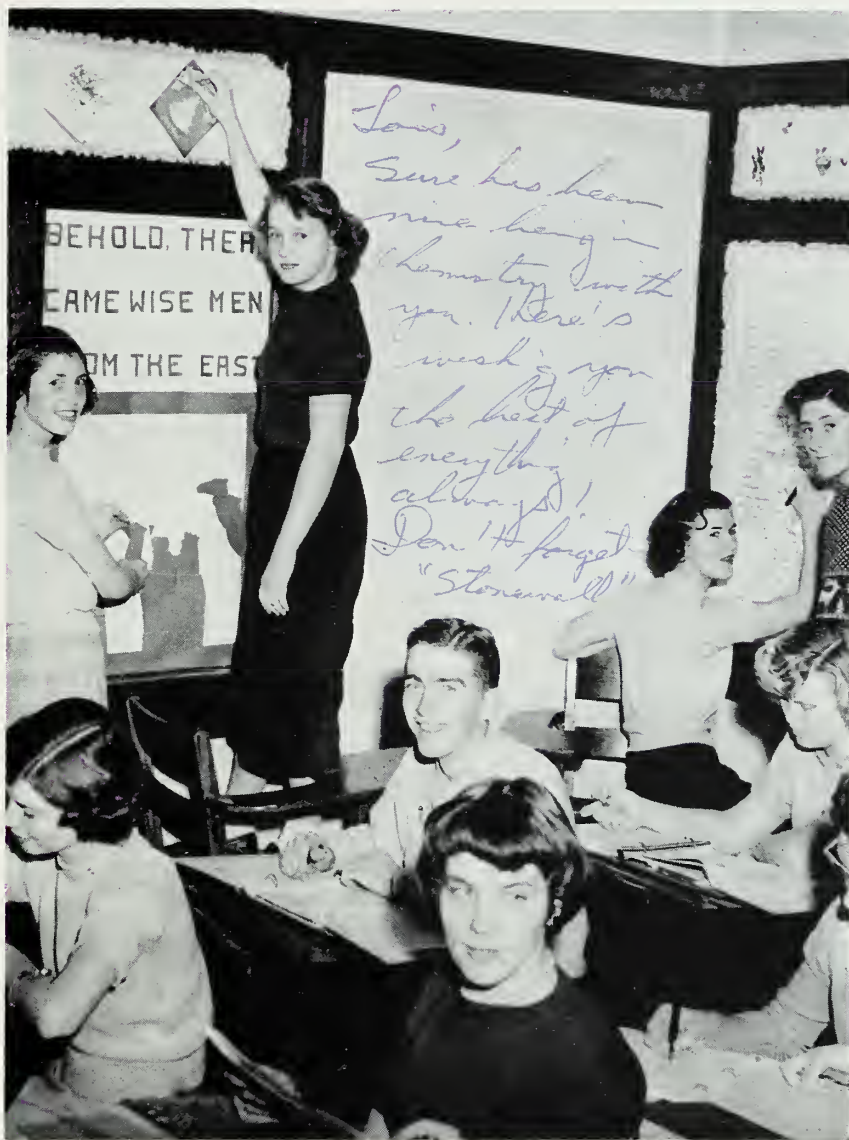 BEHOLD, THER
CAME WISE MEN
OM THE EAST
Lois,
Sure has been
nice being in
chemistry with
you. Here's
wish'g you
the best of
everything
always!
Don't forget
"Stonewall"